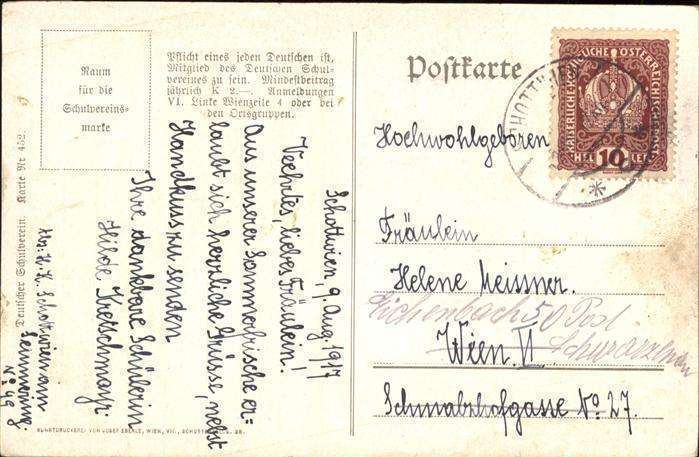 Raum
für die
Schulvereins-
marke
Pflicht eines jeden Deutschen ist,
Mitglied des Deutschen Schul-
vereines zu sein. Mindestbeitrag
jährlich K 2.—. Anmeldungen
VI. Linke Wienzeile 4 oder bei
den Ortsgruppen.
Deutscher Schulverein. Karte Nr 432.
Schottwien, 9. Aug. 1917
Verehrtes, liebes Fräulein!
Aus unserer Sommerfrische er-
laubt sich herzliche Grüsse, nebst
Handkuss zu senden
Ihre dankbare Schülerin
Hilde Kretschmayr
Schottwien am
Semmering
No 49
KUNSTDRUCKEREI VON JOSEF EBERLE, WIEN, VII.,
Postkarte
KAISERLICHE KÖNIGLICHE ÖSTERREICHISCHE POST
HEL 10 LER
SCHOTTWIEN
Hochwohlgeboren
Fräulein
Helene Meissner.
Eichenbach 50 Post
Schwarzenau
Wien VI
Schmalzhofgasse No. 27.